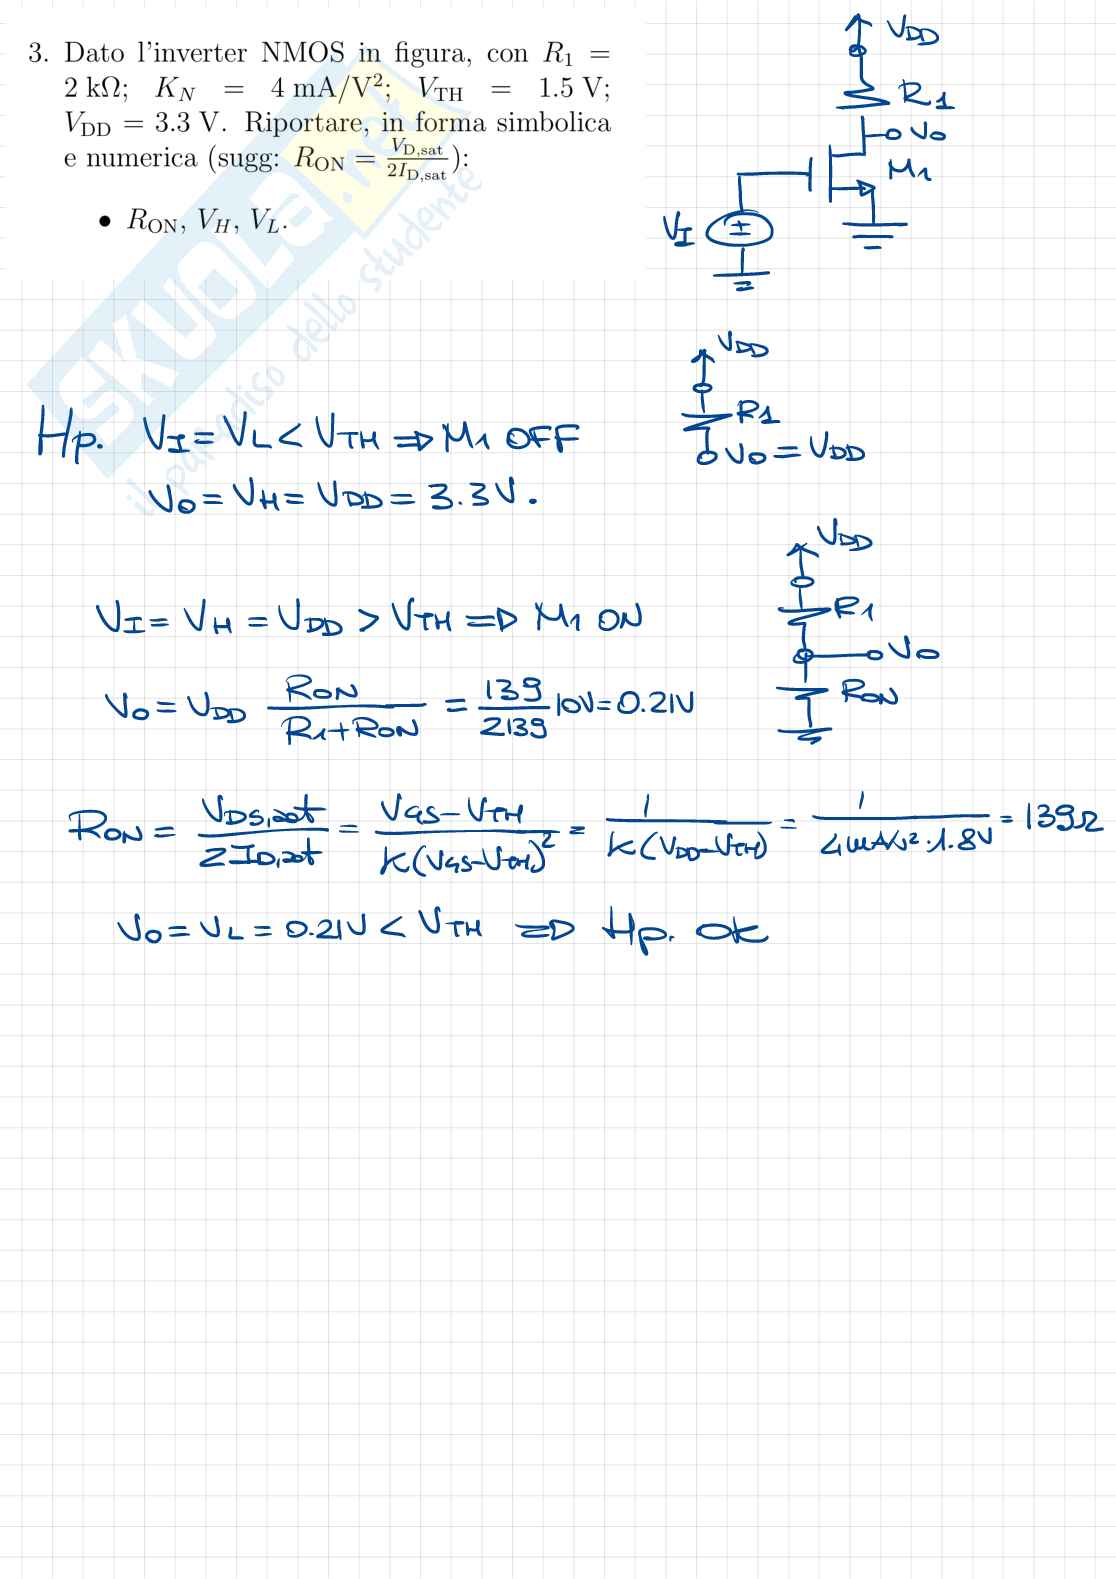 3. Dato l'inverter NMOS in figura, con R₁ =
2 kΩ; K_N = 4 mA/V²; V_TH = 1.5 V;
V_DD = 3.3 V. Riportare, in forma simbolica
e numerica (sugg: R_ON = V_D,sat / 2I_D,sat):
• R_ON, V_H, V_L.
V_DD
R1
V_O
M1
V_I
±
SKUOLA.net
il paradiso dello studente
V_DD
R1
V_O = V_DD
Hp. V_I = V_L < V_TH ⇒ M1 OFF
V_O = V_H = V_DD = 3.3V.
V_DD
R1
V_O
R_ON
V_I = V_H = V_DD > V_TH ⇒ M1 ON
V_O = V_DD R_ON / (R1 + R_ON) = 139 / 2139 10V = 0.21V
R_ON = V_DS,sat / 2I_D,sat = (V_GS - V_TH) / K(V_GS - V_TH)² = 1 / K(V_DD - V_TH) = 1 / (4mA/V² · 1.8V) = 139Ω
V_O = V_L = 0.21V < V_TH ⇒ Hp. ok